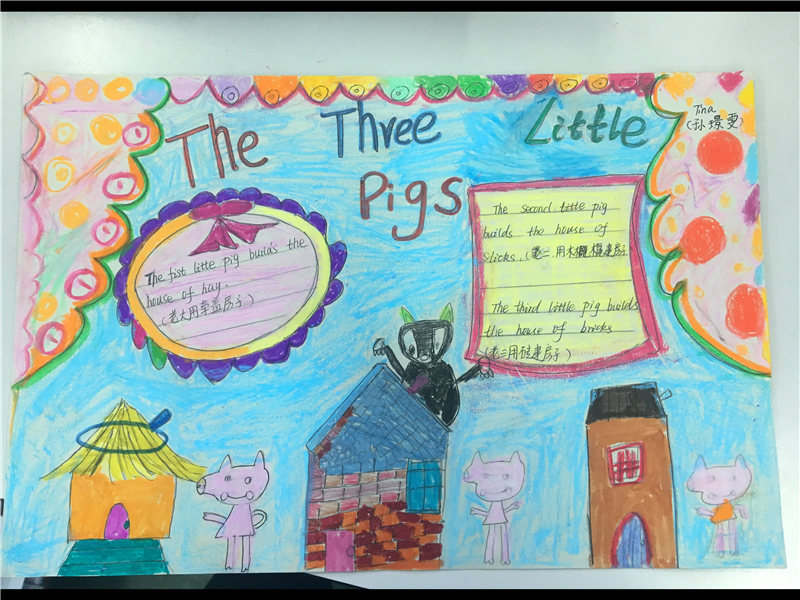 The Three Little
Pigs
Tina
(孙璟雯)
The fist little pig build's the
house of hay.
(老大用草盖房子)
The second little pig
builds the house of
sticks. (老二用木棍搭建房子
The third little pig builds
the house of bricks
(老三用砖建房子)